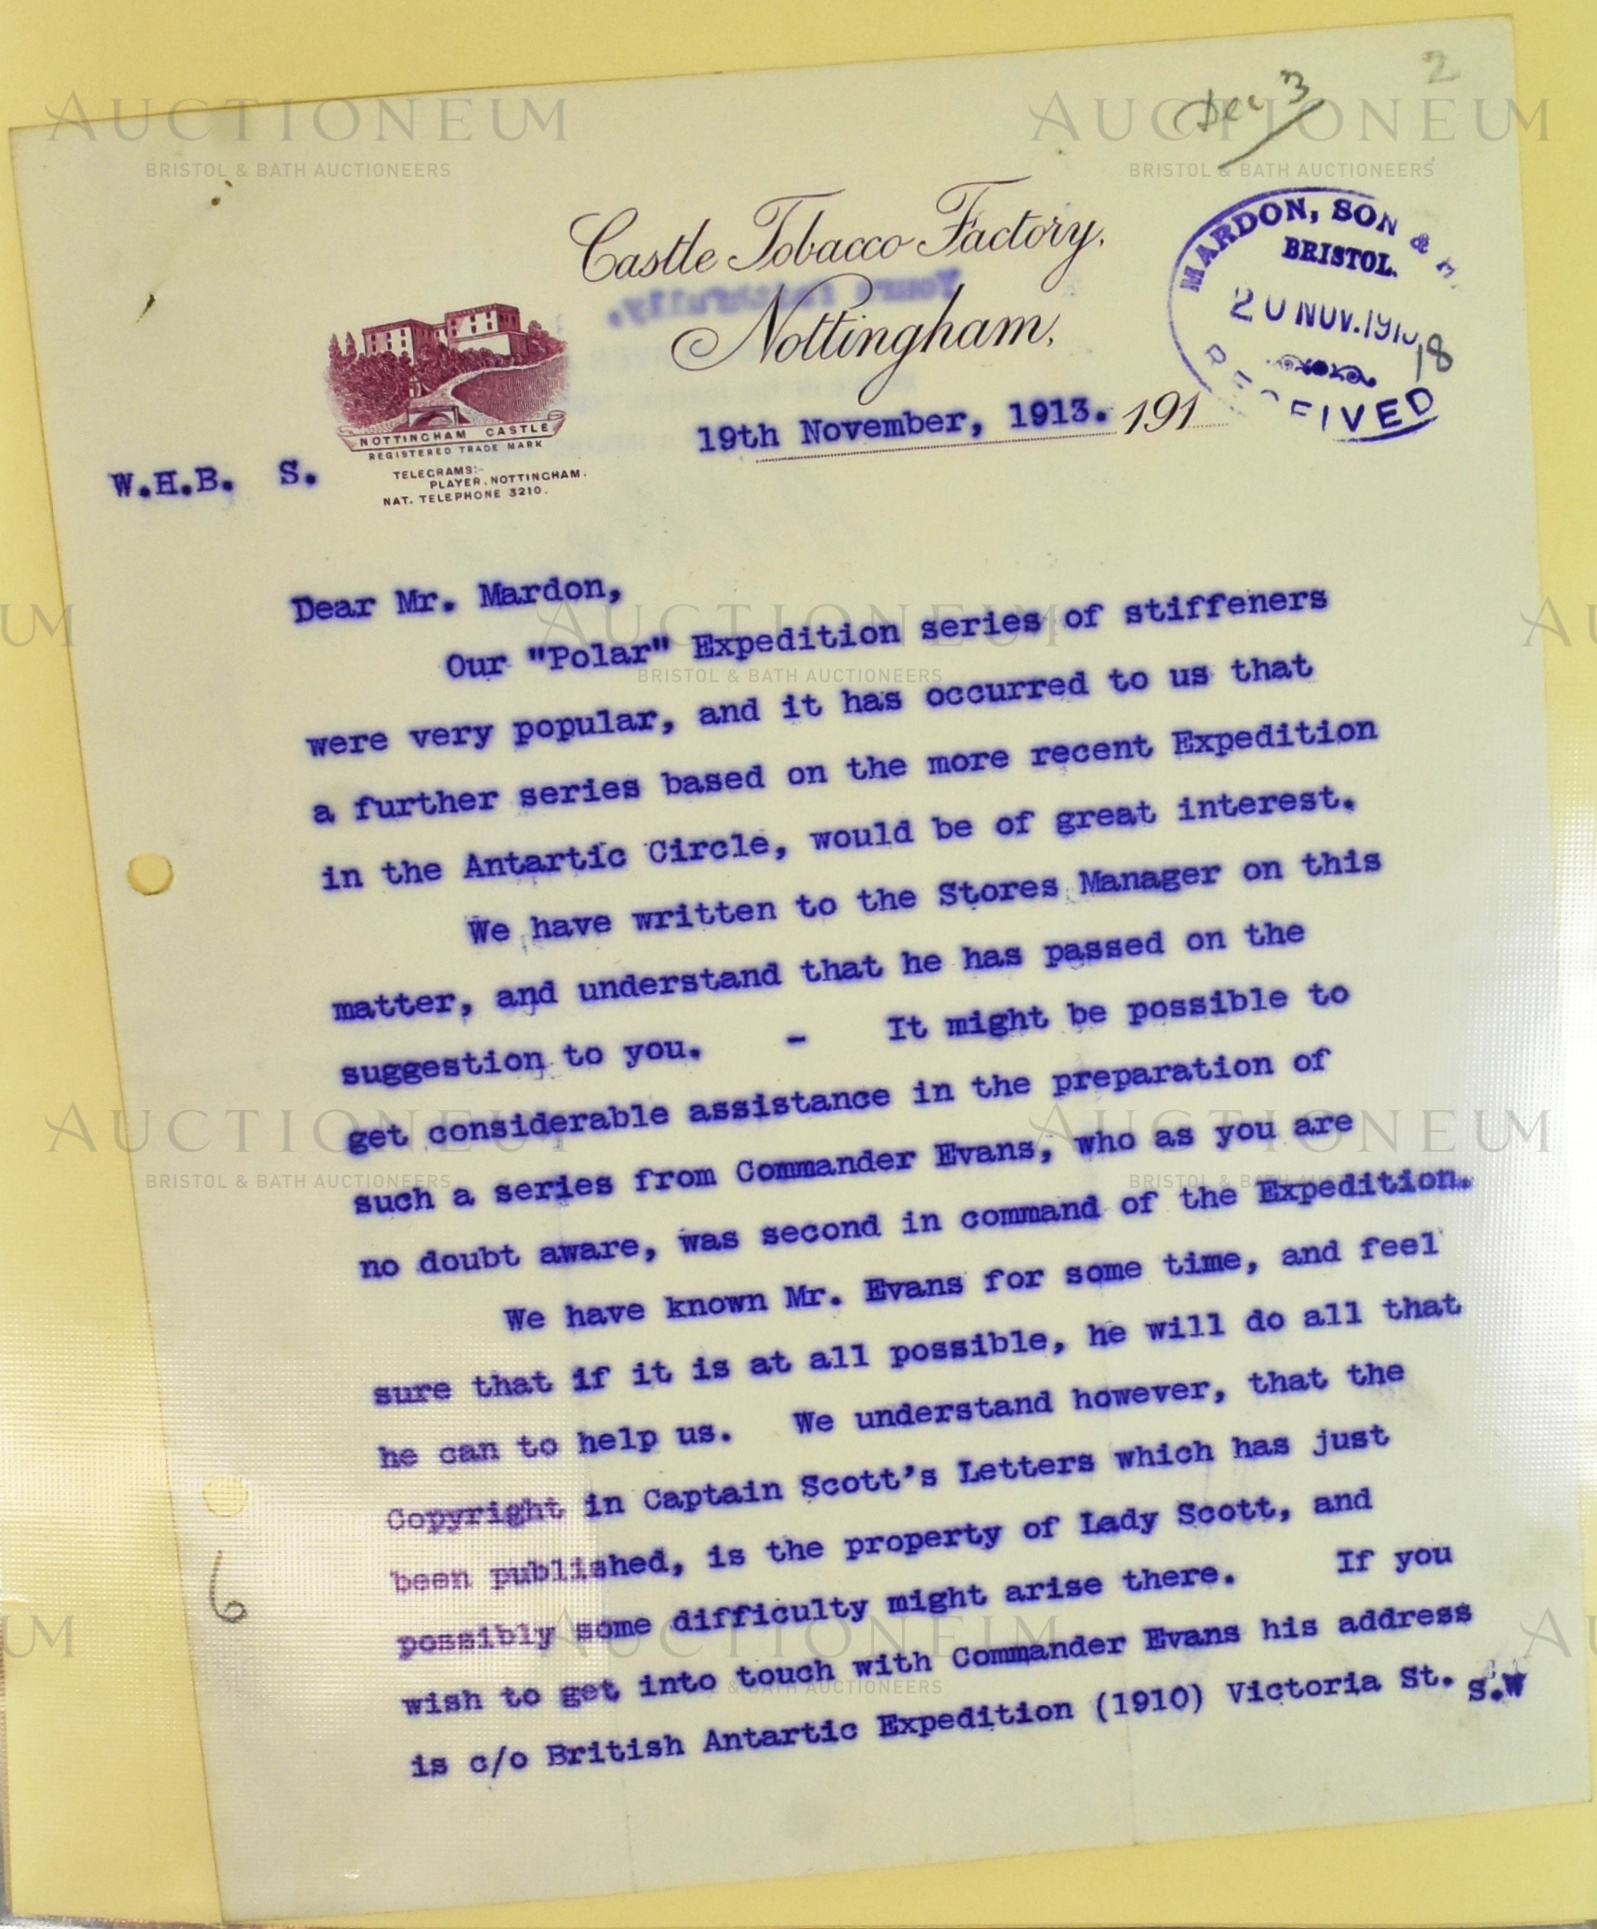 2
Dec 3
Castle Tobacco Factory,
Nottingham,
MARDON, SON &
BRISTOL.
20 NOV. 191
18
NOTTINGHAM CASTLE
REGISTERED TRADE MARK
TELEGRAMS:-
PLAYER, NOTTINGHAM.
NAT. TELEPHONE 3210.
19th November, 1913. 191
W.H.B. S.
Dear Mr. Mardon,
Our "Polar" Expedition series of stiffeners
were very popular, and it has occurred to us that
a further series based on the more recent Expedition
in the Antartic Circle, would be of great interest.
We have written to the Stores Manager on this
matter, and understand that he has passed on the
suggestion to you. - It might be possible to
get considerable assistance in the preparation of
such a series from Commander Evans, who as you are
no doubt aware, was second in command of the Expedition.
We have known Mr. Evans for some time, and feel
sure that if it is at all possible, he will do all that
he can to help us. We understand however, that the
Copyright in Captain Scott's Letters which has just
been published, is the property of Lady Scott, and
possibly some difficulty might arise there. If you
wish to get into touch with Commander Evans his address
is c/o British Antartic Expedition (1910) Victoria St. S.W
6
AUCTIONEUM
BRISTOL & BATH AUCTIONEERS
AUCTIONEUM
BRISTOL & BATH AUCTIONEERS
AUCTIONEUM
BRISTOL & BATH AUCTIONEERS
AUCTIONEUM
BRISTOL & BATH AUCTIONEERS
AUCTIONEUM
BRISTOL & BATH AUCTIONEERS
AUCTIONEUM
& BATH AUCTIONEERS